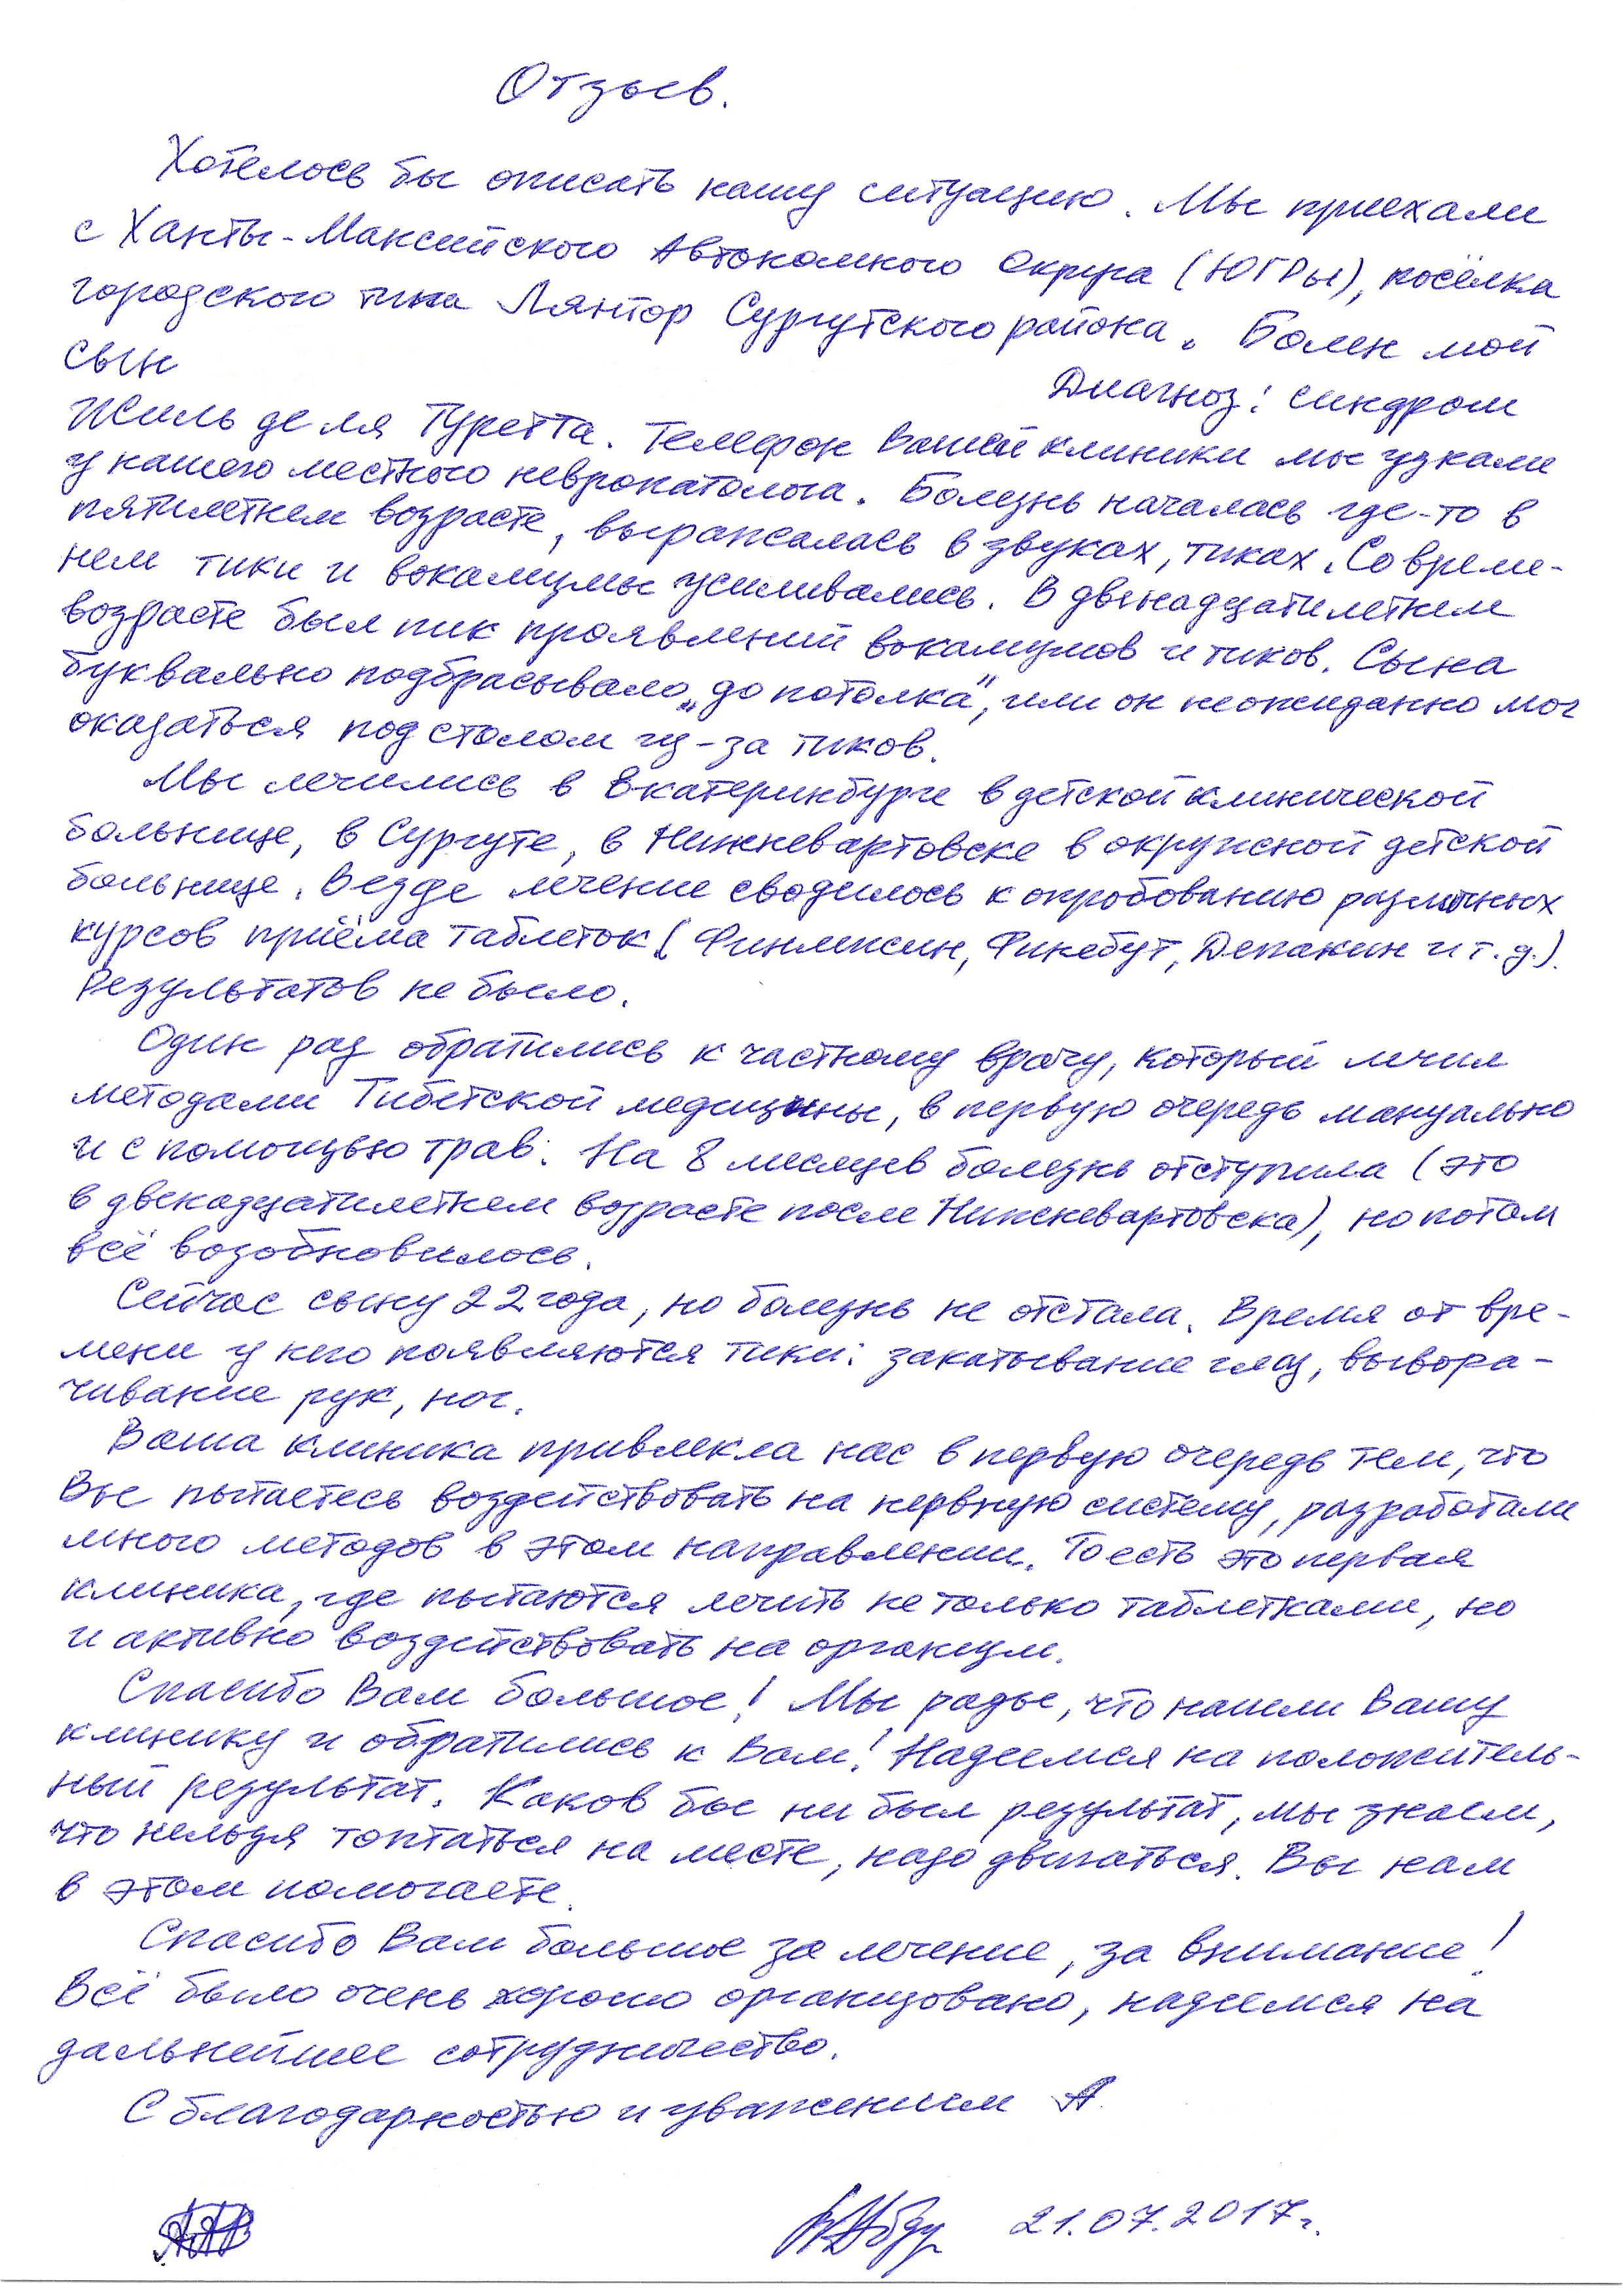 Отзыв.
Хотелось бы описать нашу ситуацию. Мы приехали
с Ханты-Мансийского Автономного Округа (ЮГРы), посёлка
городского типа Лянтор Сургутского района. Болен мой
сын
Диагноз: синдром
Жиль де ля Туретта. Телефон Вашей клиники мы узнали
у нашего местного невропатолога. Болезнь началась где-то в
пятилетнем возрасте, выражалась в звуках, тиках. Со време-
нем тики и вокализмы усиливались. В двенадцатилетнем
возрасте был пик проявлений вокализмов и тиков. Сына
буквально подбрасывало „до потолка", или он неожиданно мог
оказаться под столом из-за тиков.
Мы лечились в Екатеринбурге в детской клинической
больнице, в Сургуте, в Нижневартовске в окружной детской
больнице. Везде лечение сводилось к опробованию различных
курсов приёма таблеток (Финлепсин, Фикебут, Депакин и т.д.).
Результатов не было.
Один раз обратились к частному врачу, который лечил
методами Тибетской медицины, в первую очередь мануально
и с помощью трав. На 8 месяцев болезнь отступила (это
в двенадцатилетнем возрасте после Нижневартовска), но потом
всё возобновилось.
Сейчас сыну 22 года, но болезнь не отстала. Время от вре-
мени у него появляются тики: закатывание глаз, вывора-
чивание рук, ног.
Ваша клиника привлекла нас в первую очередь тем, что
Вы пытаетесь воздействовать на нервную систему, разработали
много методов в этом направлении. То есть это первая
клиника, где пытаются лечить не только таблетками, но
и активно воздействовать на организм.
Спасибо Вам большое! Мы рады, что нашли Вашу
клинику и обратились к Вам! Надеемся на положитель-
ный результат. Каков бы ни был результат, мы знаем,
что нельзя топтаться на месте, надо двигаться. Вы нам
в этом помогаете.
Спасибо Вам большое за лечение, за внимание!
Всё было очень хорошо организовано, надеемся на
дальнейшее сотрудничество.
С благодарностью и уважением А
21.07.2017г.